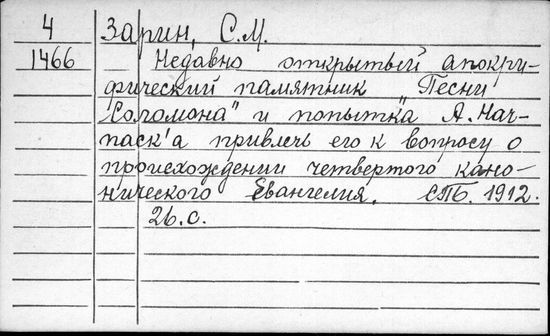 4 Зарин, С.М.
1466 Недавно открытый апокри-
фический памятник „Песни
Соломона" и попытка А. Нар-
паск'а привлечь его к вопросу о
происхождении четвертого кано-
нического Евангелия. СПБ. 1912.
26.с.